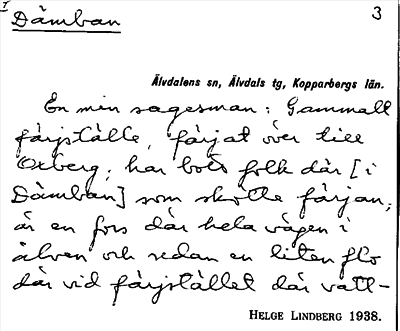 Dämban 3
Älvdalens sn, Älvdals tg, Kopparbergs län.
En min sagesman: Gammalt
färjställe, färjat över till
Oxberg; har bott folk där [i
Dämban] som skötte färjan;
är en fors där hela vägen i
älven och sedan en liten flo
där vid färjstället där vatt-
HELGE LINDBERG 1938.